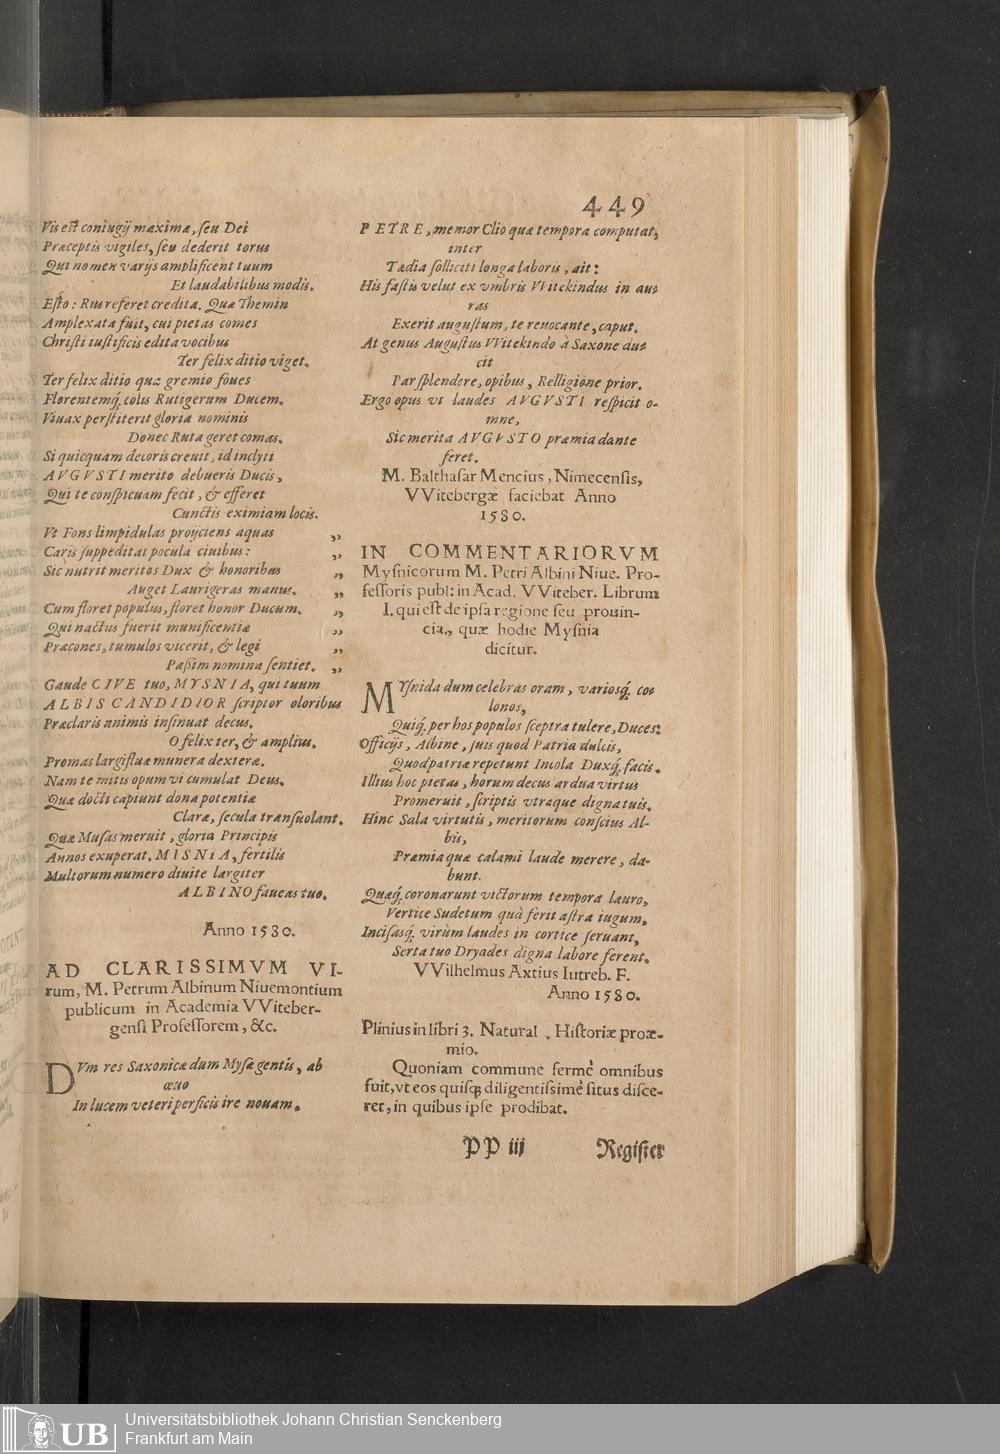 449
Vis est coniugij maximæ, seu Dei
Præceptis vigiles, seu dederit torus
Qui nomen varijs amplificent tuum
Et laudabilibus modis.
Esto: Rus referet credita. Quæ Themin
Amplexata fuit, cui pietas comes
Christi iustificis edita vocibus
Ter felix ditio viget.
Ter felix ditio quæ gremio foues
Florentemq́; colis Rutigerum Ducem.
Viuax perstiterit gloria nominis
Donec Ruta geret comas.
Si quicquam decoris creuit, id inclyti
AVGVSTI merito debueris Ducis,
Qui te conspicuam fecit, & efferet
Cunctis eximiam locis.
Vt Fons limpidulas proijciens aquas „
Caris suppeditat pocula ciuibus: „
Sic nutrit meritos Dux & honoribus „
Auget Laurigeras manus. „
Cum floret populus, floret honor Ducum. „
Qui nactus fuerit munificentiæ „
Præcones, tumulos vicerit, & legi „
Passim nomina sentiet. „
Gaude CIVE tuo, MYSNIA, qui tuum
ALBIS CANDIDIOR scriptor oloribus
Præclaris animis insinuat decus.
O felix ter, & amplius.
Promas largifluæ munera dexteræ.
Nam te mitis opum vi cumulat Deus.
Quæ docti capiunt dona potentiæ
Claræ, secula transuolant.
Quæ Musas meruit, gloria Principis
Annos exuperat. MISNIA, fertilis
Multorum numero diuite largiter
ALBINO faueas tuo.
Anno 1580.
AD CLARISSIMVM VI-
rum, M. Petrum Albinum Niuemontium
publicum in Academia VViteber-
gensi Professorem, &c.
DVm res Saxonicæ dum Mysæ gentis, ab
æuo
In lucem veteri perficis ire nouam.
PETRE, memor Clio quæ tempora computat,
inter
Tædia solliciti longa laboris, ait:
His fastis velut ex vmbris VVitekindus in au-
ras
Exerit augustum, te reuocante, caput.
At genus Augustus VVitekindo à Saxone du-
cit
Par splendore, opibus, Relligione prior.
Ergo opus vt laudes AVGVSTI respicit o-
mne,
Sic merita AVGVSTO præmia dante
feret.
M. Balthasar Mencius, Nimecensis,
VVitebergæ faciebat Anno
1580.
IN COMMENTARIORVM
Mysnicorum M. Petri Albini Niue. Pro-
fessoris publ: in Acad. VViteber. Librum
I. qui est de ipsa regione seu prouin-
cia, quæ hodie Mysnia
dicitur.
MYsnida dum celebras oram, variosq́; co-
lonos,
Quiq́; per hos populos sceptra tulere, Duces:
Officijs, Albine, suis quod Patria dulcis,
Quod patriæ repetunt Incola Duxq́; facis.
Illius hoc pietas, horum decus ardua virtus
Promeruit, scriptis vtraque digna tuis.
Hinc Sala virtutis, meritorum conscius Al-
bis,
Præmia quæ calami laude merere, da-
bunt.
Quæq́; coronarunt victorum tempora lauro,
Vertice Sudetum quà ferit astra iugum.
Incisasq́; virûm laudes in cortice seruant,
Serta tuo Dryades digna labore ferent.
VVilhelmus Axtius Iutreb. F.
Anno 1580.
Plinius in libri 3. Natural. Historiæ proæ-
mio.
Quoniam commune fermè omnibus
fuit, vt eos quisq; diligentissimè situs disce-
ret, in quibus ipse prodibat.
PP iij Register
Universitätsbibliothek Johann Christian Senckenberg
Frankfurt am Main
UB